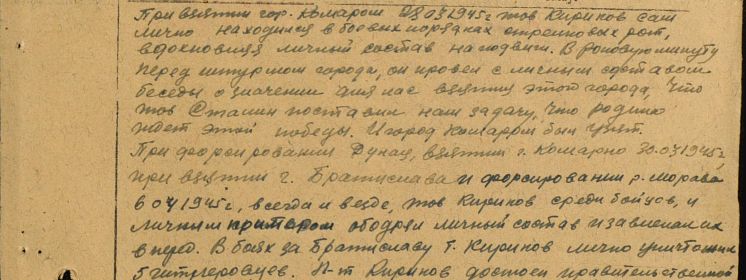 При взятии гор. Комаром 28.03.1945г тов Кириков сам
лично находился в боевых порядках стрелковых рот,
вдохновляя личный состав на подвиги. В роковую минуту
перед штурмом города, он провел с личным составом
беседы о значении для нас взятия этого города, что
тов Сталин поставил нам задачу, что родина
ждет этой победы. И город Комаром был взят.
При форсировании Дуная, взятии г. Комарно 30.03.1945г
при взятии г. Братислава и форсировании р. Морава
6.04.1945г, всегда и везде, тов Кириков среди бойцов, и
личным примером ободрял личный состав и завлекал их
вперед. В боях за Братиславу т. Кириков лично уничтожил
5 гитлеровцев. Л-т Кириков достоен правительственной